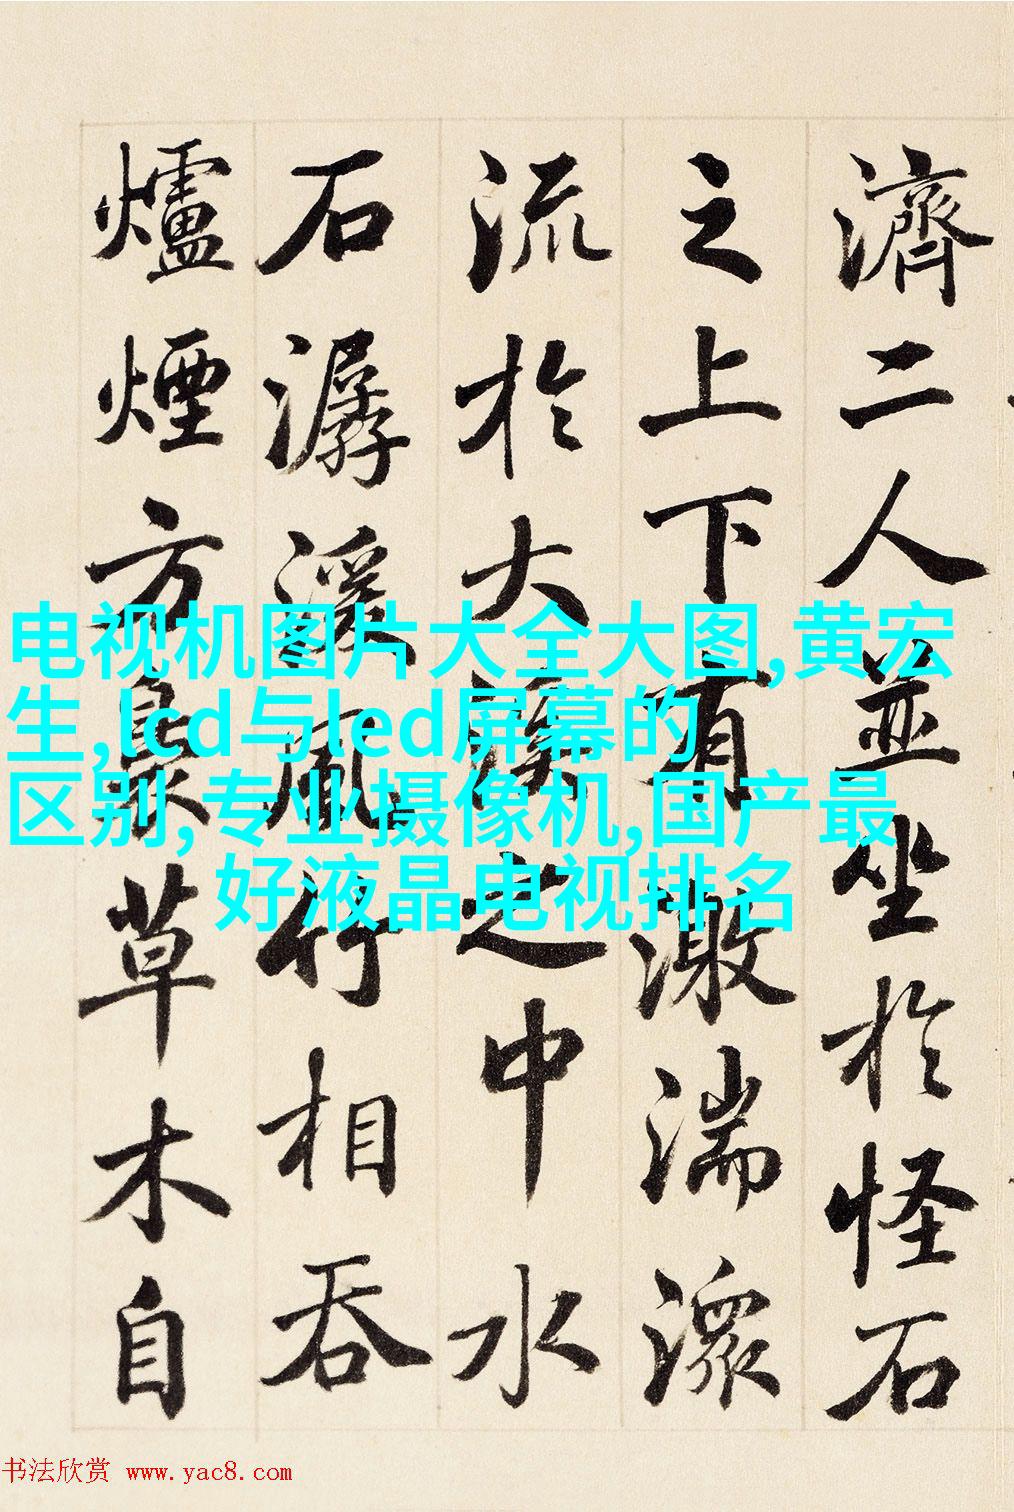 濟二人並坐於怪石
之上下有激湍潨
流於大溪之中水
石潺湲風行相吞
爐煙方裊草木自
电视机图片大全大图,黄宏
生,lcd与led屏幕的
区别,专业摄像机,国产最
好液晶电视排名
书法欣赏 www.yac8.com